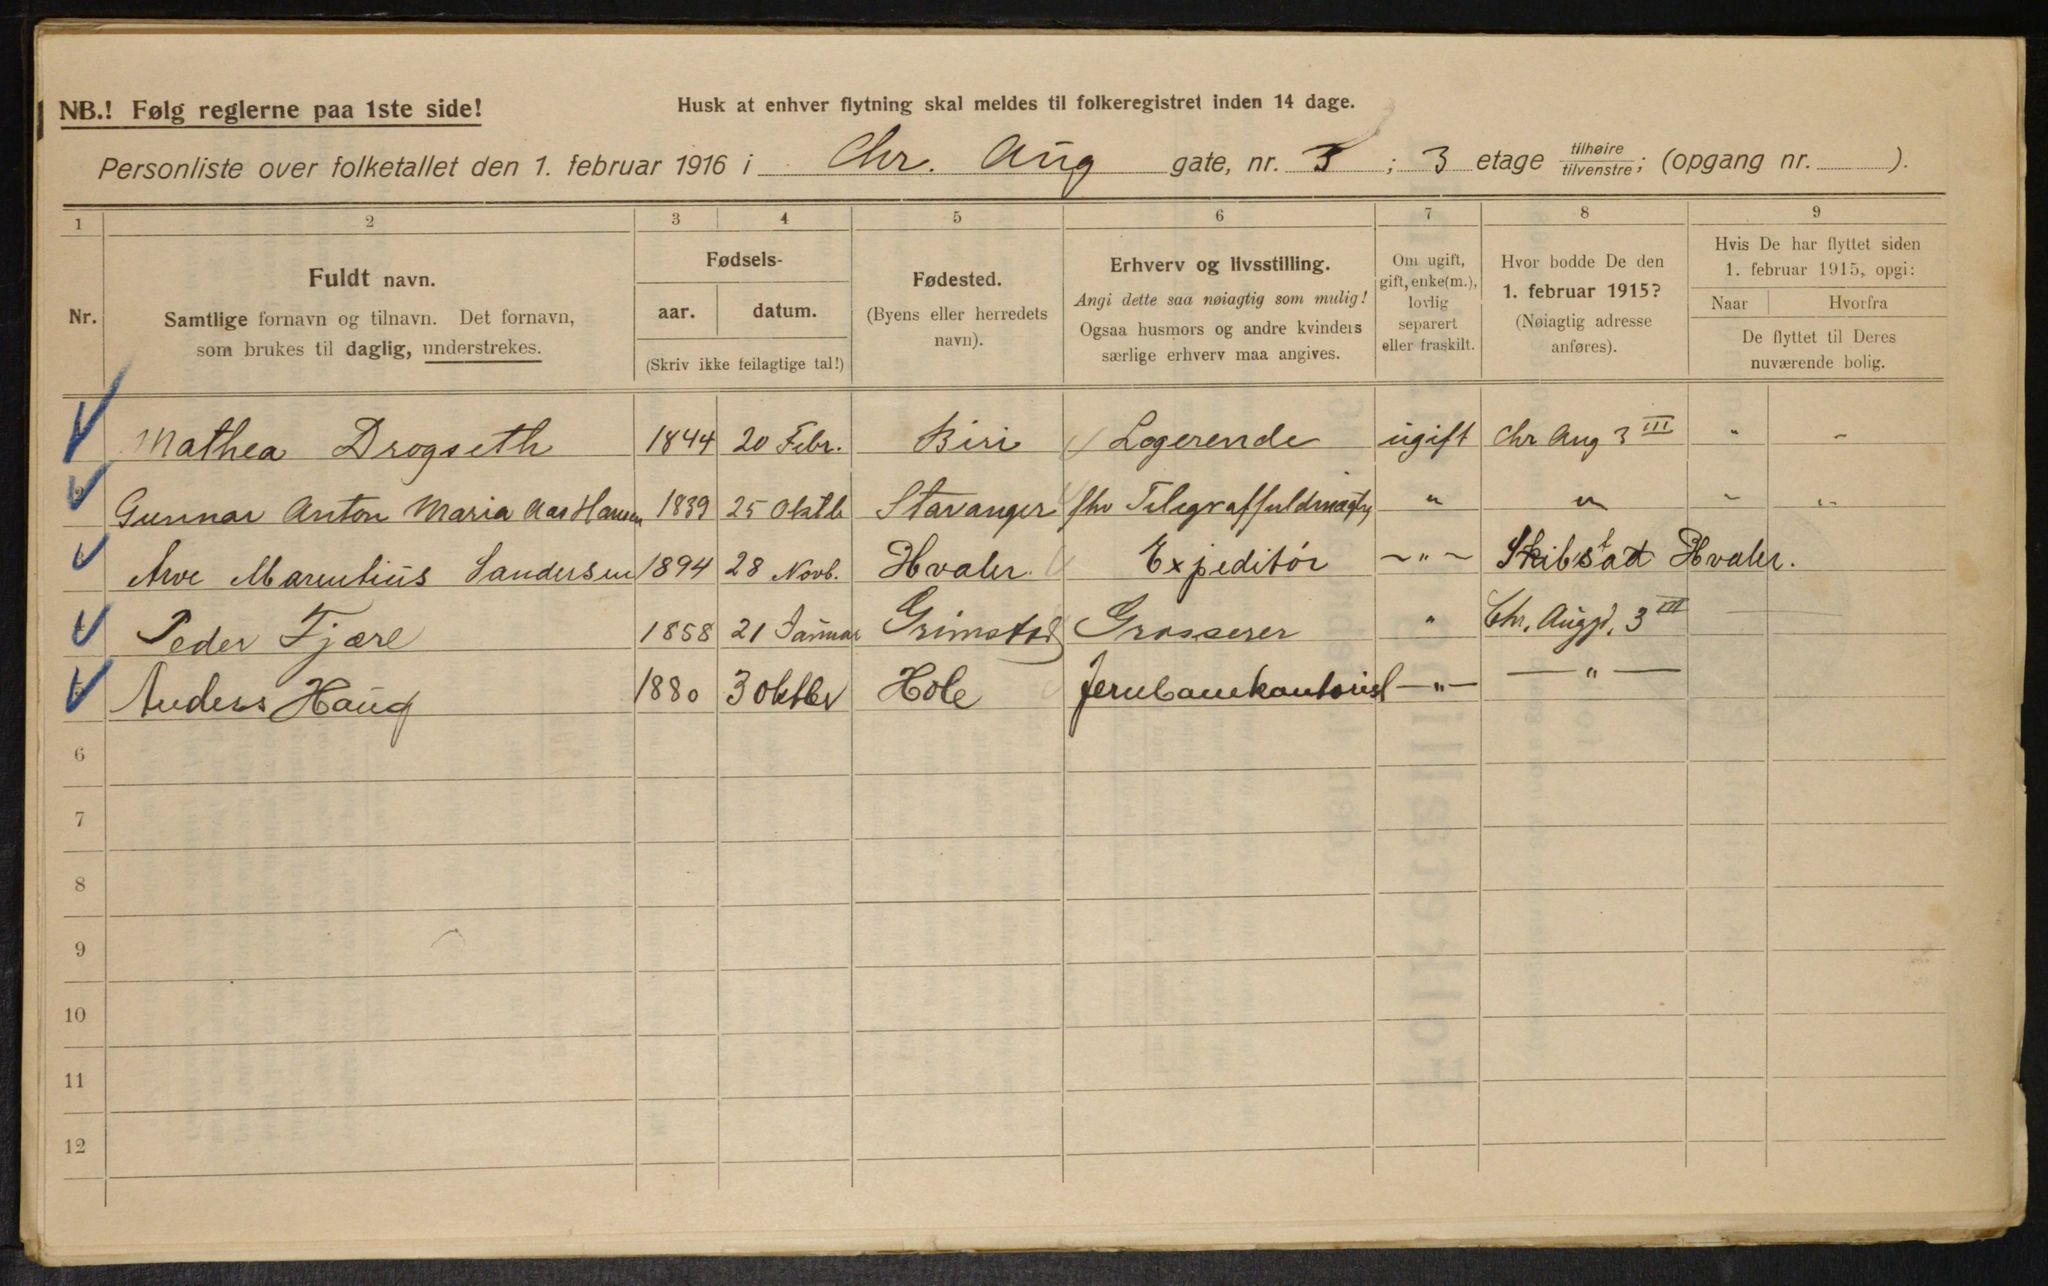 NB.! Følg reglerne paa 1ste side!
Husk at enhver flytning skal meldes til folkeregistret inden 14 dage.
Personliste over folketallet den 1. februar 1916 i Chr. Aug gate, nr. 3; 3 etage tilhøire/tilvenstre; (opgang nr. ).
1 2 3 4 5 6 7 8 9
Nr.
Fuldt navn.
Samtlige fornavn og tilnavn. Det fornavn,
som brukes til daglig, understrekes.
Fødsels-
aar. datum.
(Skriv ikke feilagtige tal!)
Fødested.
(Byens eller herredets
navn).
Erhverv og livsstilling.
Angi dette saa nøiagtig som mulig!
Ogsaa husmors og andre kvinders
særlige erhverv maa angives.
Om ugift,
gift, enke(m.),
lovlig
separert
eller fraskilt.
Hvor bodde De den
1. februar 1915?
(Nøiagtig adresse
anføres).
Hvis De har flyttet siden
1. februar 1915, opgi:
Naar Hvorfra
De flyttet til Deres
nuværende bolig.
Mathea Drogseth 1844 20 Febr. Biri Logerende ugift Chr Aug 3 III " "
2 Gunnar Anton Maria Aas Hansen 1839 25 Oktb Stavanger fhv Telegraffuldmægtig " " " "
3 Arve Marentius Sandersen 1894 28 Novb. Hvaler. Expeditør " Skibstad Hvaler.
4 Peder Fjære 1858 21 Januar Grimstad Grosserer " Chr. Augg. 3 III —
5 Anders Haug 1880 3 oktbr Hole Jernbanekontorist —"— —"—
6
7
8
9
10
11
12